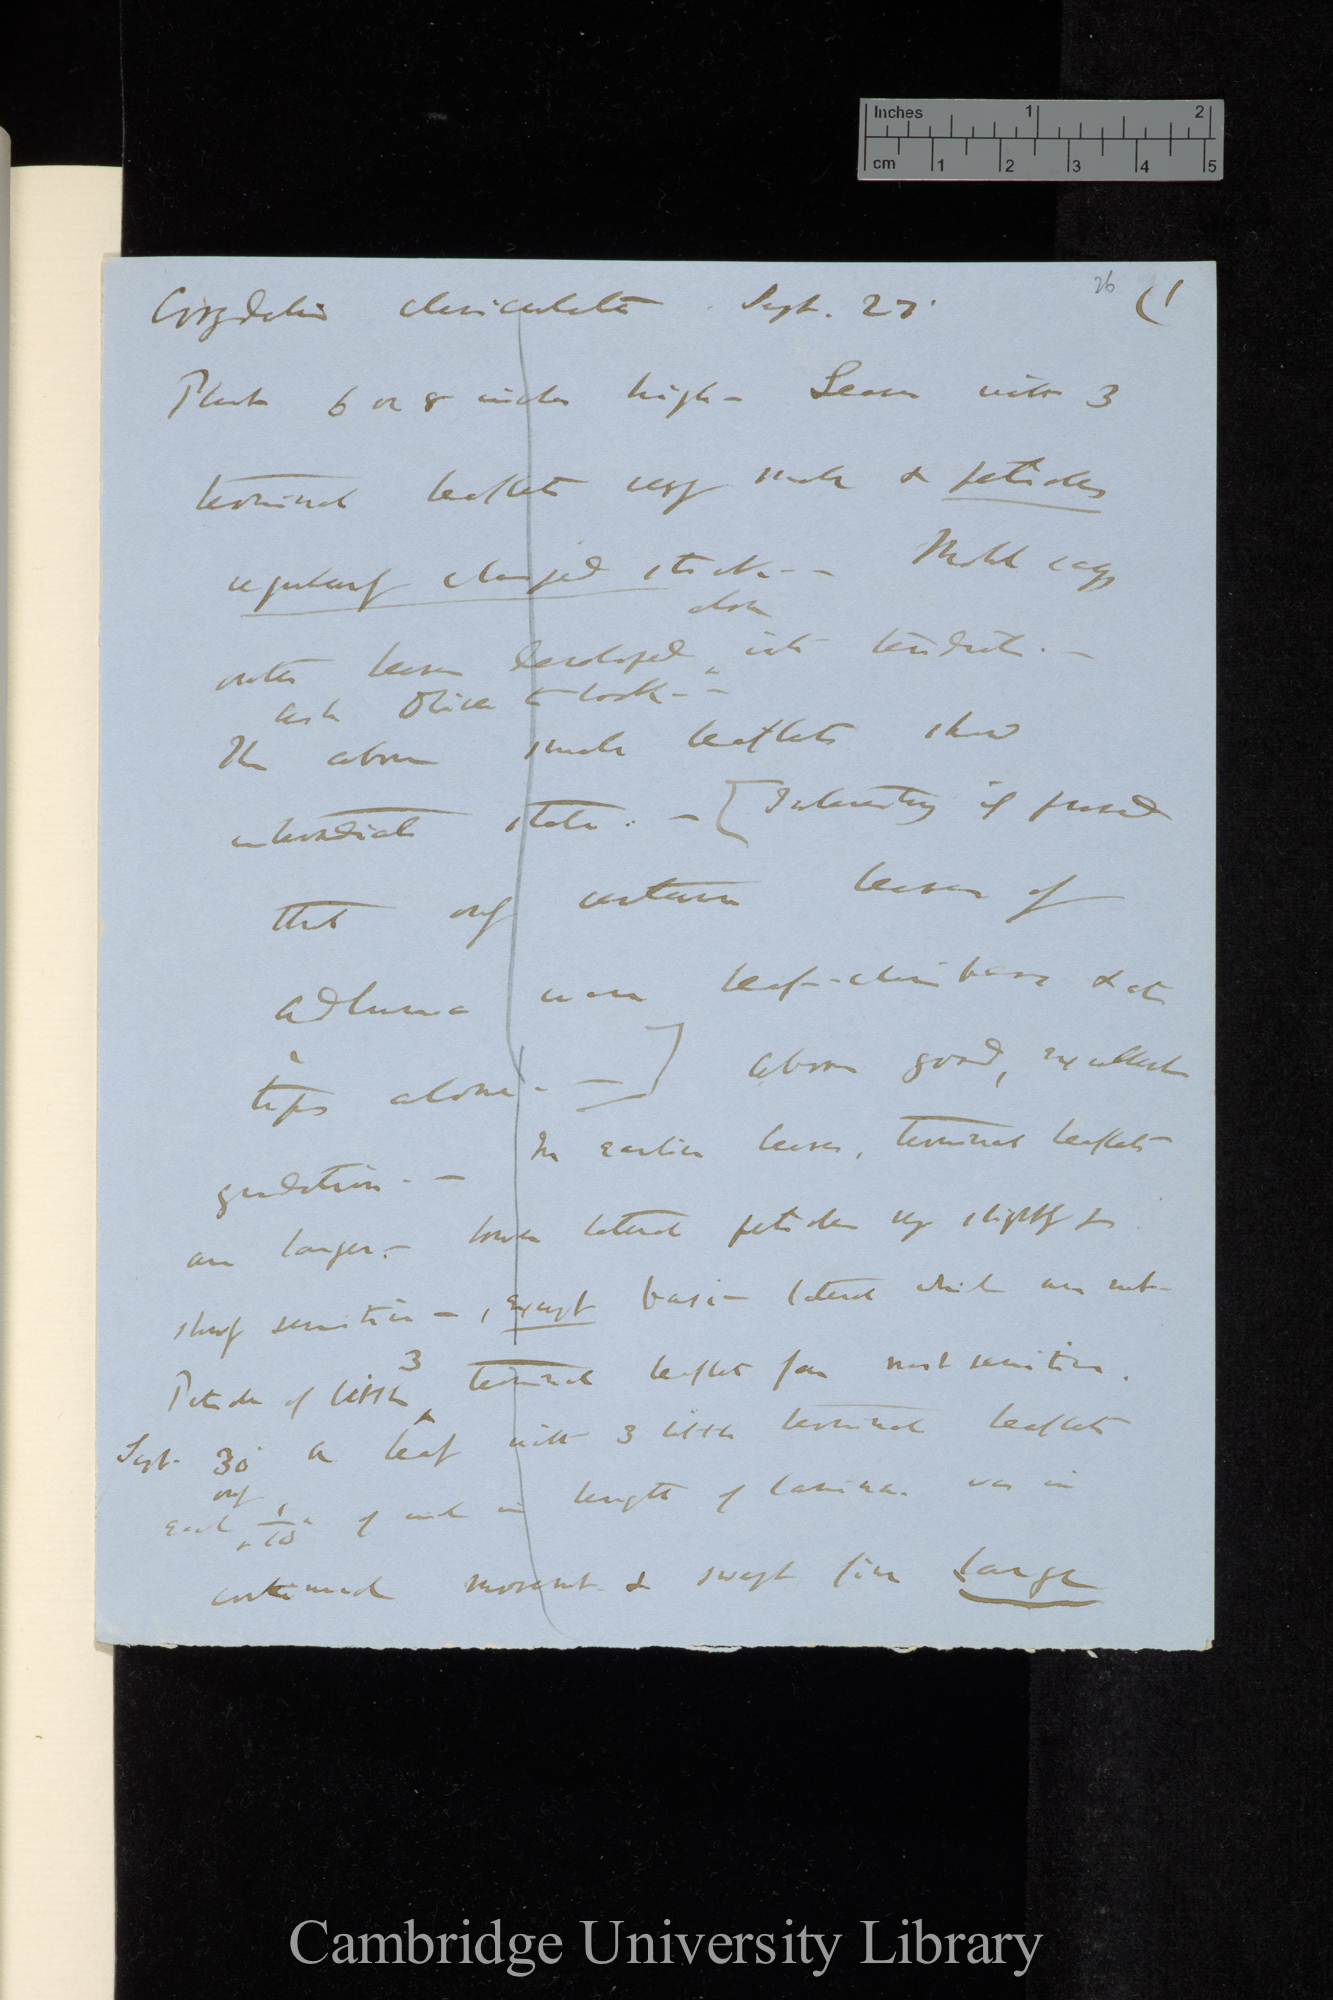 Inches 1 2
cm 1 2 3 4 5
26 (1
Corydalis claviculata Sept. 27.
Plants 6 or 8 inches high — Leaves with 3
terminal leaflets very small & petioles
regularly clasped stick. — Mohl says
alone
other leaves developed ^ into tendrils. —
ask Oliver to look. —
The above small leaflets show
intermediate state. — [Interesting if proved
that only certain leaves of
Adlumia were leaf-climbers & at
tips alone. —] above good, excellent
gradation. — In earlier leaves, terminal leaflets
are larger. — lower lateral petioles very slightly &
slowly sensitive —, except basi— lateral which are not—
3
Petioles of little ^ terminal leaflets far most sensitive.
Sept. 30 A leaf with 3 little terminal leaflets
only
each ^ 1/10 of inch in length of lamina. was in
continued movement & swept five large
Cambridge University Library